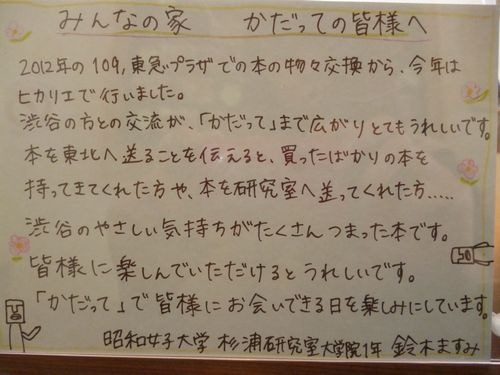 みんなの家　かだっての皆様へ
2012年の109,東急プラザでの本の物々交換から、今年は
ヒカリエで行いました。
渋谷の方との交流が、「かだって」まで広がりとてもうれしいです。
本を東北へ送ることを伝えると、買ったばかりの本を
持ってきてくれた方や、本を研究室へ送ってくれた方.....
渋谷のやさしい気持ちがたくさんつまった本です。
皆様に楽しんでいただけるとうれしいです。
「かだって」で皆様にお会いできる日を楽しみにしています。
昭和女子大学 杉浦研究室大学院1年 鈴木ますみ